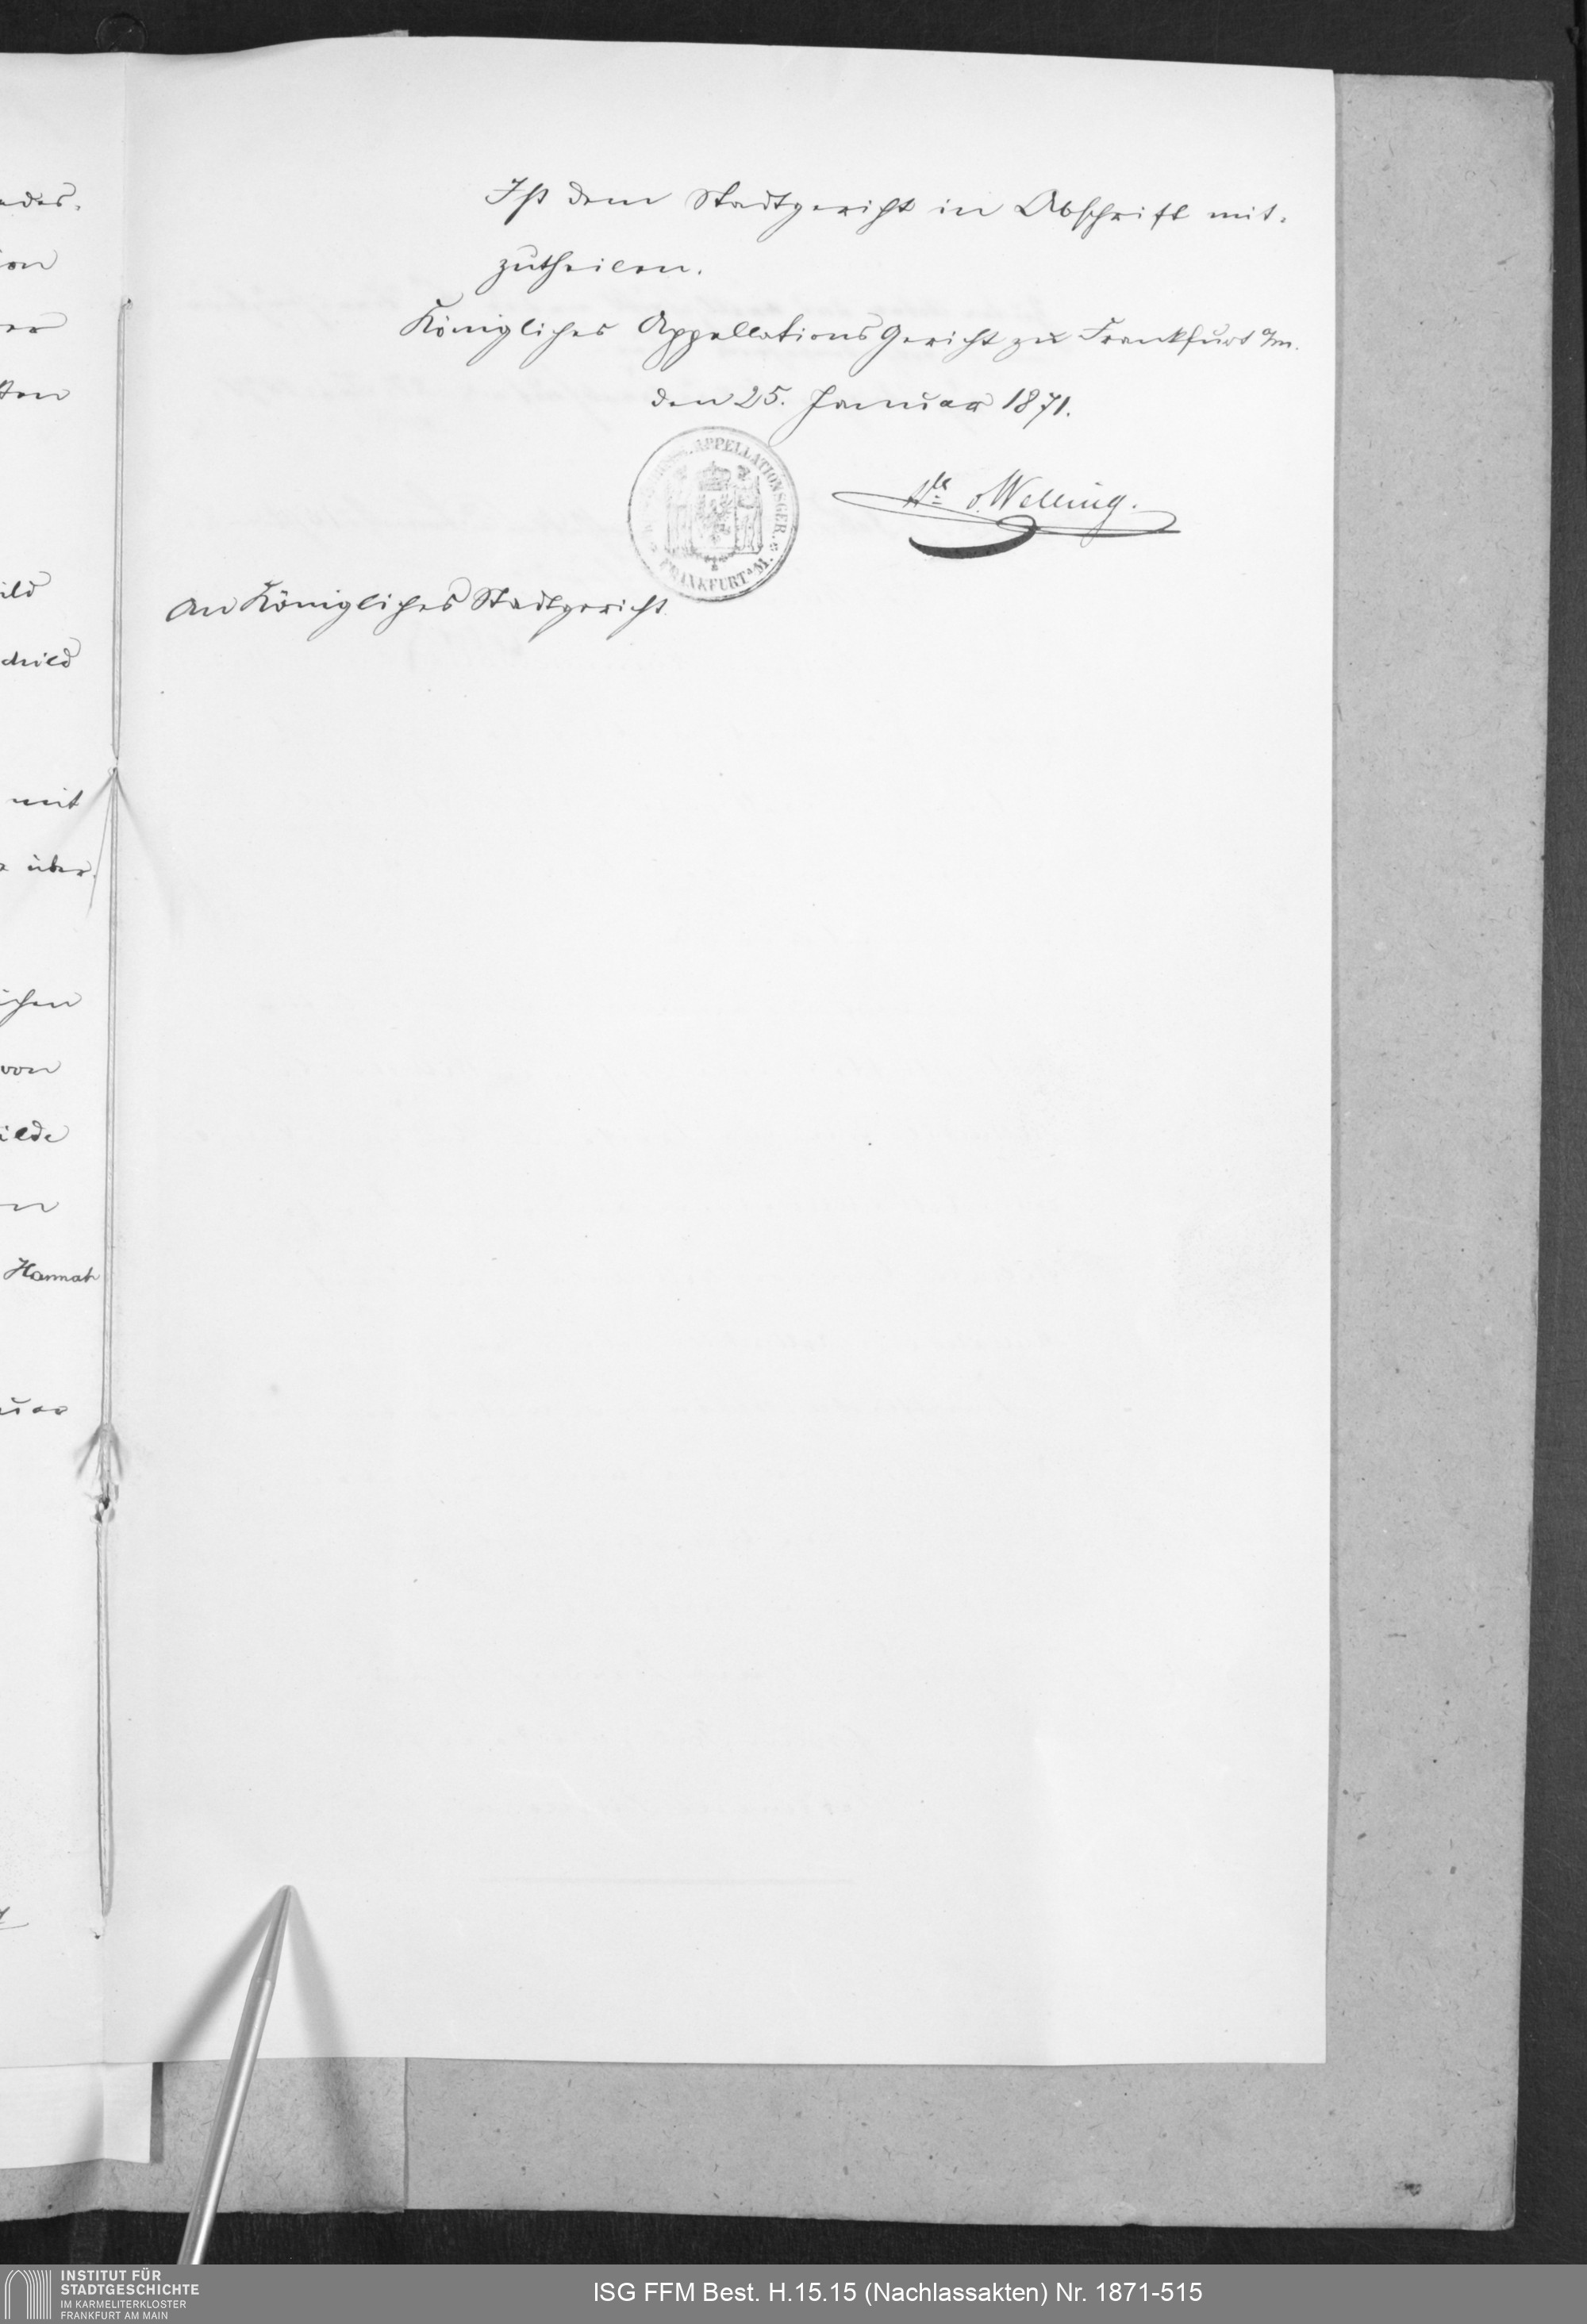 Ist dem Stadtgericht in Abschrift mit-
zutheilen.
Königliches AppellationsGericht zu Frankfurt a/m.
den 25. Januar 1871.
APPELLATIONSGER.
FRANKFURT A/M.
v. Welling.
An Königliches Stadtgericht
ild
child
mit
über
von
ilde
Hannah
INSTITUT FÜR
STADTGESCHICHTE
IM KARMELITERKLOSTER
FRANKFURT AM MAIN
ISG FFM Best. H.15.15 (Nachlassakten) Nr. 1871-515